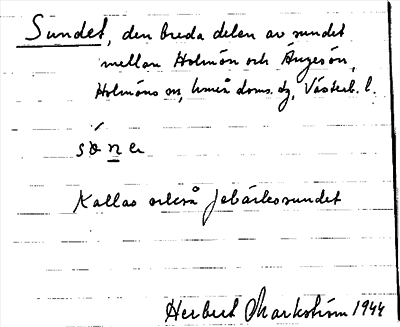 Sundet, den breda delen av sundet
mellan Holmön och Ängesön,
Holmöns sn, Umeå doms. dg, Västerb. l.
Kallas också Jebärkesundet
Herbert Markström 1944